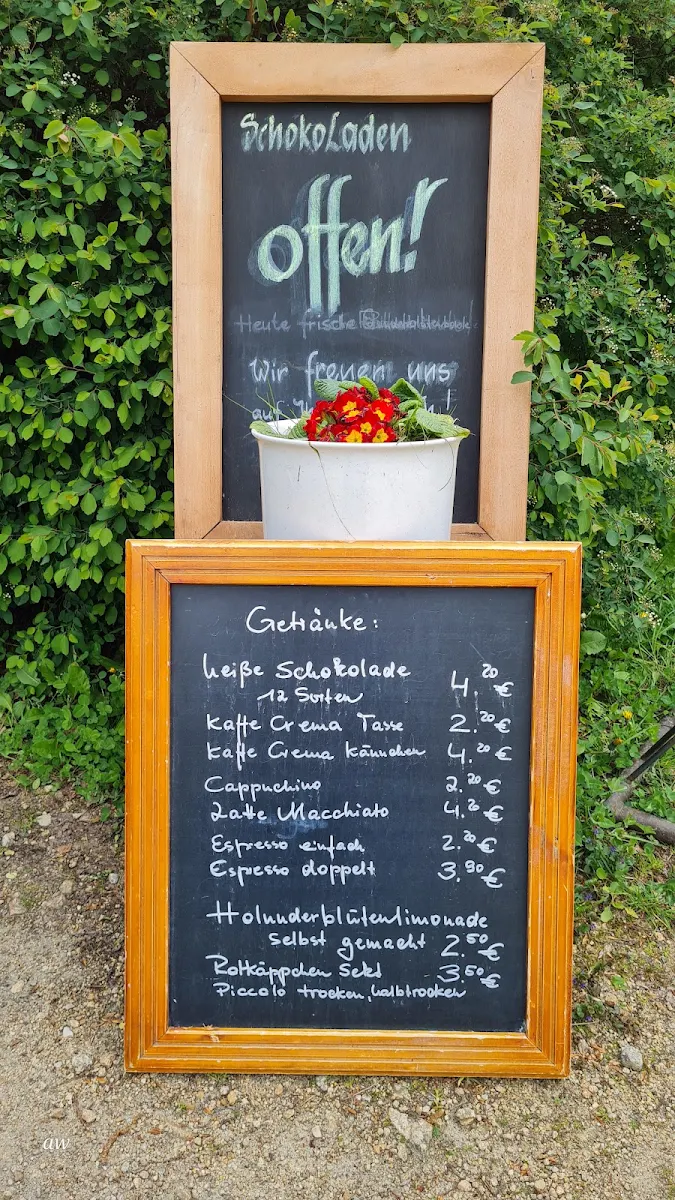 SchokoLaden
offen!
Heute frische
Wir freuen uns
auf
Getränke:
heiße Schokolade 4.20 €
12 Sorten
Kaffe Crema Tasse 2.20 €
Kaffe Crema Kännchen 4.20 €
Cappuchino 2.20 €
Latte Macchiato 4.20
Espresso einfach 2.20 €
Espresso doppelt 3.90 €
Holunderblütenlimonade
selbst gemacht 2.50 €
Rotkäppchen Sekt 3.50 €
Piccolo trocken, halbtrocken
aw